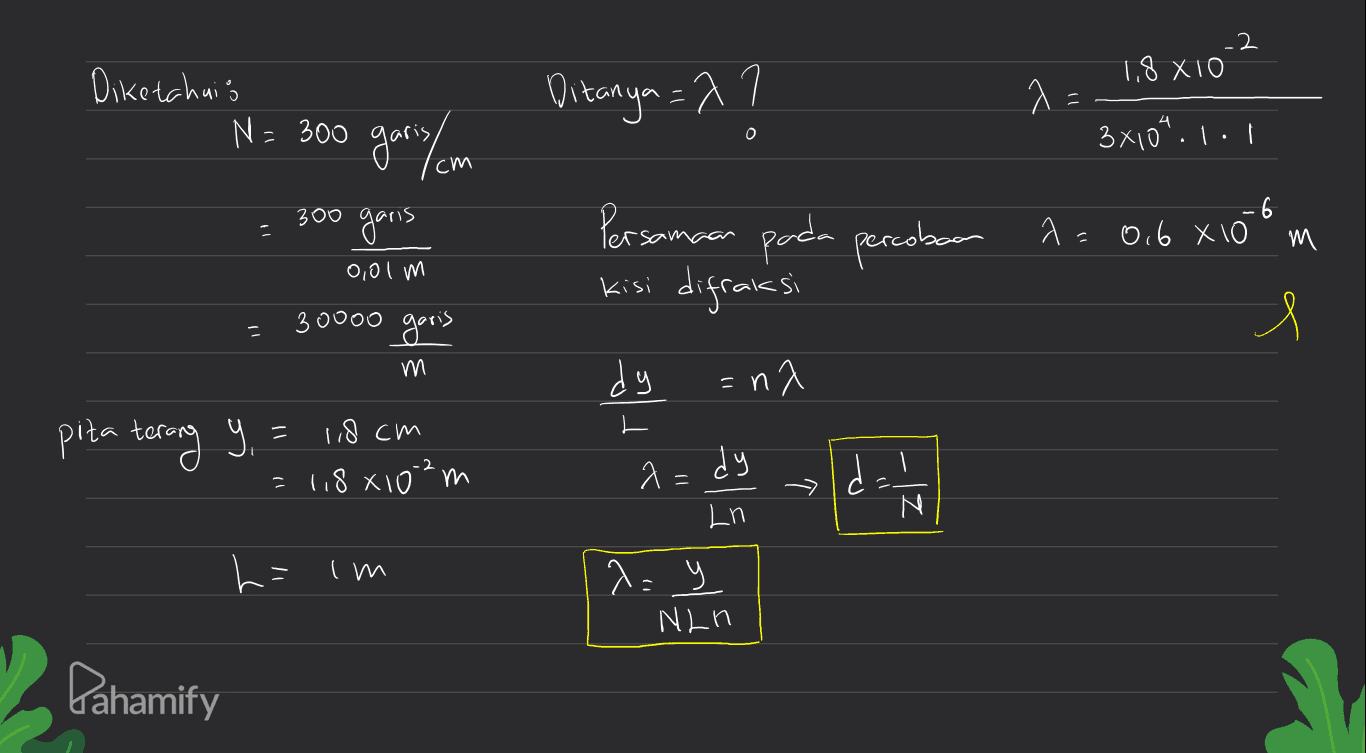 Diketahui:
N = 300 garis/cm
= 300 garis
0,01 m
= 30000 garis
m
pita terang y₁ = 1,8 cm
= 1,8 x10⁻² m
L = 1 m
Ditanya = λ ?
Persamaan pada percobaan
kisi difraksi
dy = nλ
L
λ = dy → d = 1
Ln N
λ = y
NLn
λ = 1,8 x10⁻²
3x10⁴ . 1 . 1
λ = 0,6 x10⁻⁶ m
Pahamify